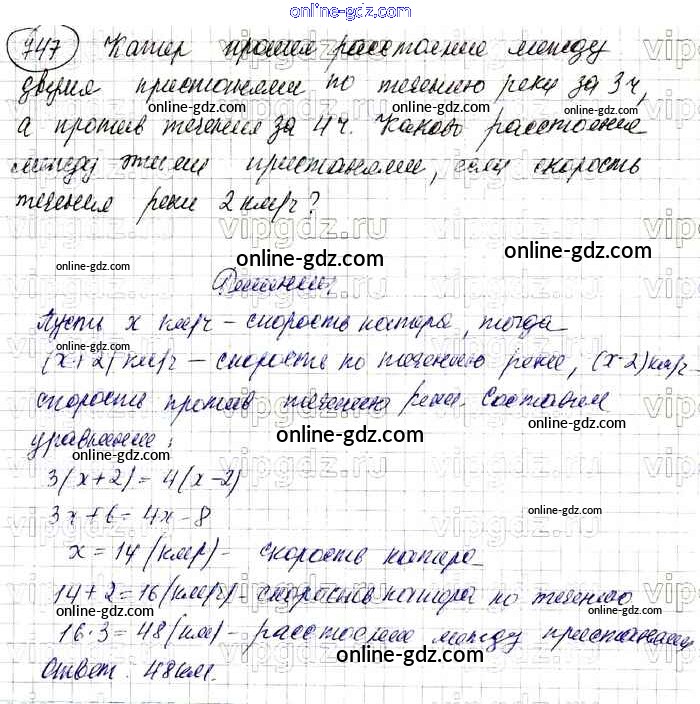 online-gdz.com
747 Катер прошел расстояние между
двумя пристанями по течению реки за 3 ч,
online-gdz.com online-gdz.com
а против течения за 4 ч. Каково расстояние
online-gdz.com
между этими пристанями, если скорость
online-gdz.com
течения реки 2 км/ч?
vipgdz.ru
online-gdz.com
online-gdz.com
Решение:
online-gdz.com
Пусть x км/ч – скорость катера, тогда
online-gdz.com
(x+2) км/ч – скорость по течению реки, (x-2) км/ч –
скорость против течения реки. Составим
уравнение:
online-gdz.com
online-gdz.com
3(x+2) = 4(x-2)
3x+6 = 4x-8
online-gdz.com
x = 14 (км/ч) – скорость катера
online-gdz.com
14+2=16 (км/ч) – скорость катера по течению
online-gdz.com
16·3=48 (км) – расстояние между пристанями
online-gdz.com
Ответ: 48 км.
online-gdz.com